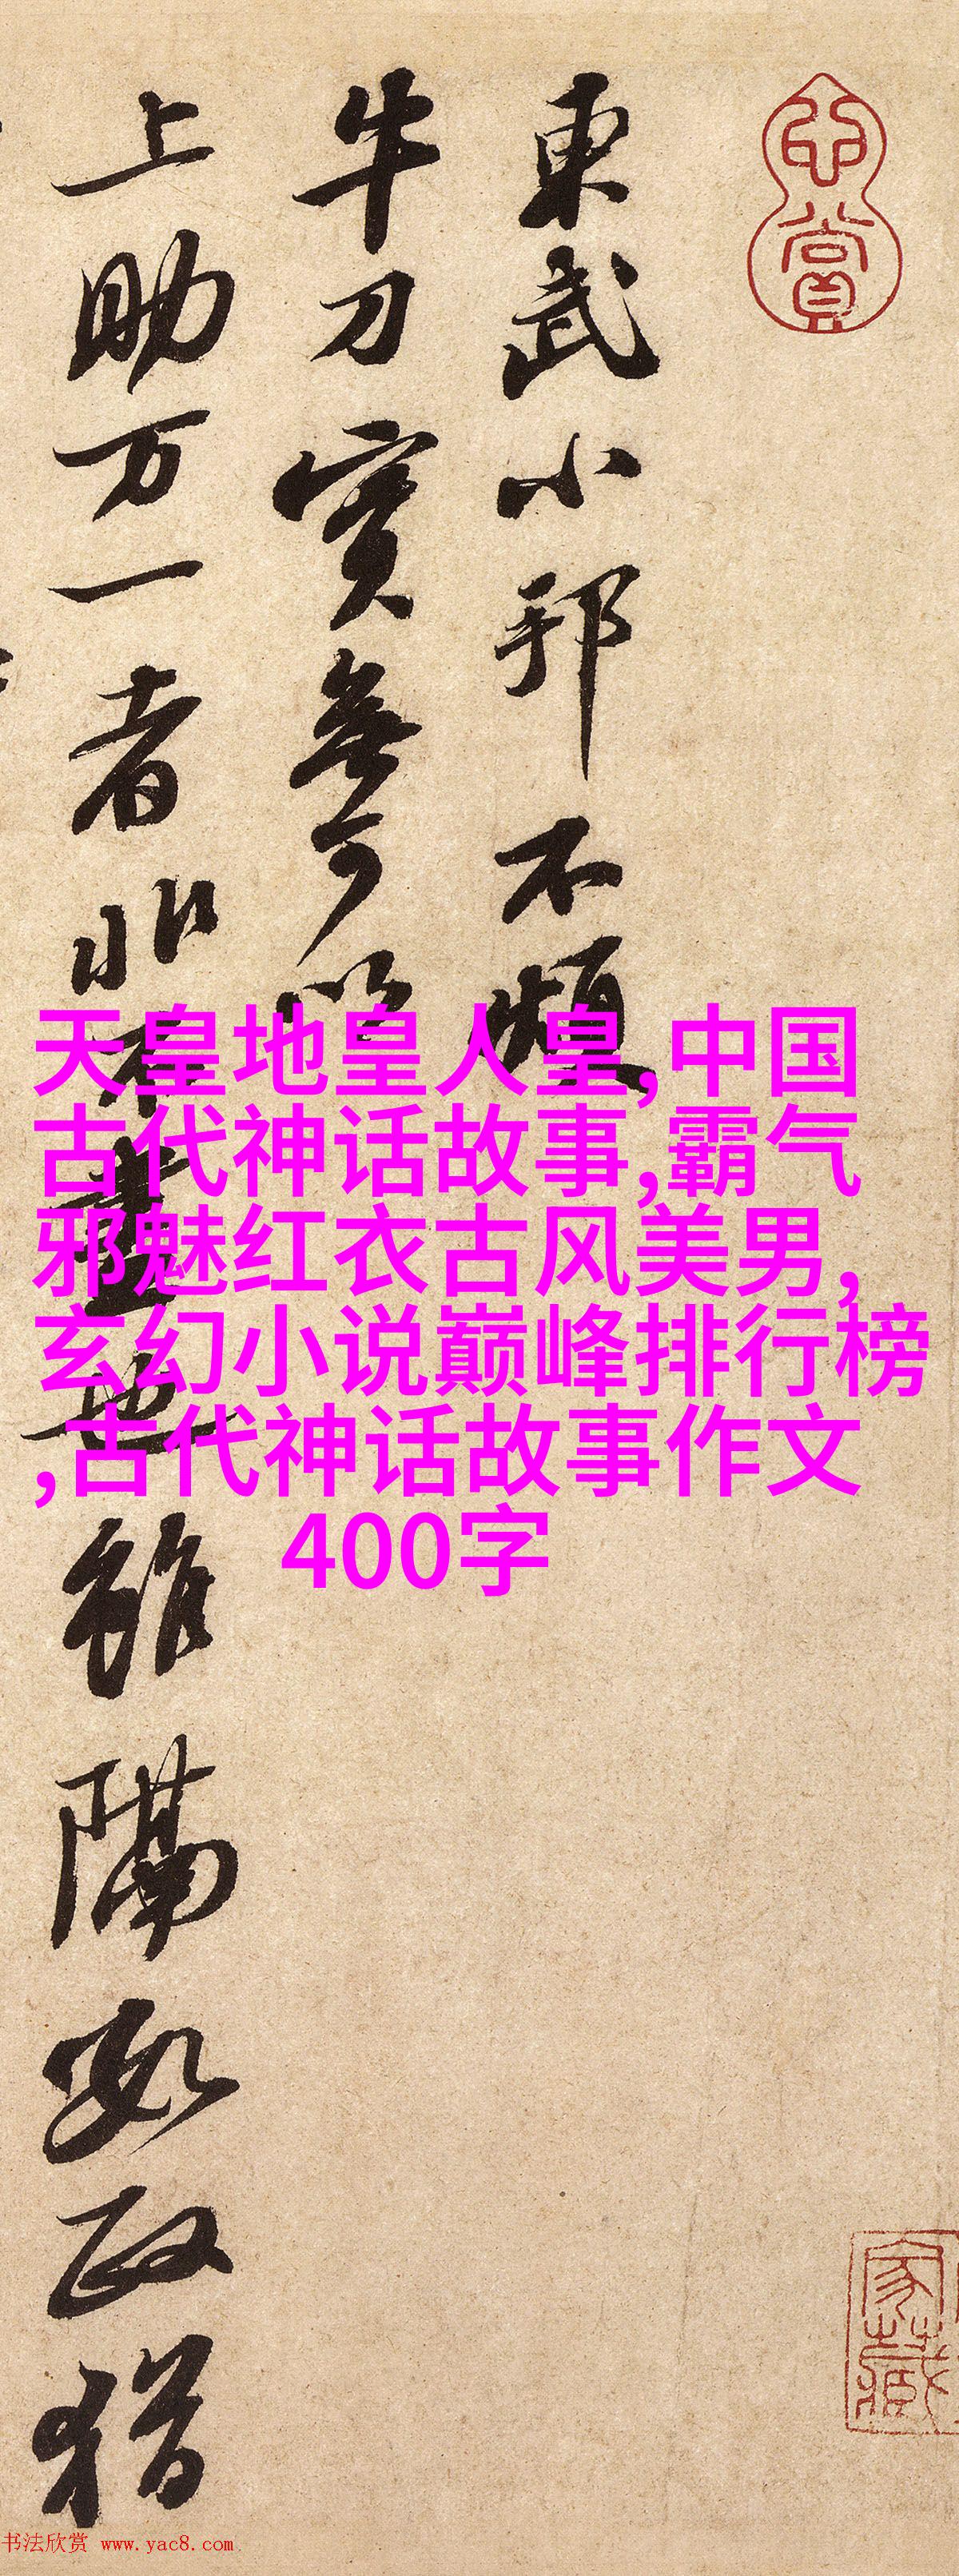 心賞
東武小邦不煩
牛刀實無可以
上助万一者非不盡也雖隔數政猶
天皇地皇人皇,中国
古代神话故事,霸气
邪魅红衣古风美男,
玄幻小说巅峰排行榜
,古代神话故事作文
400字
家藏
书法欣赏 www.yac8.com